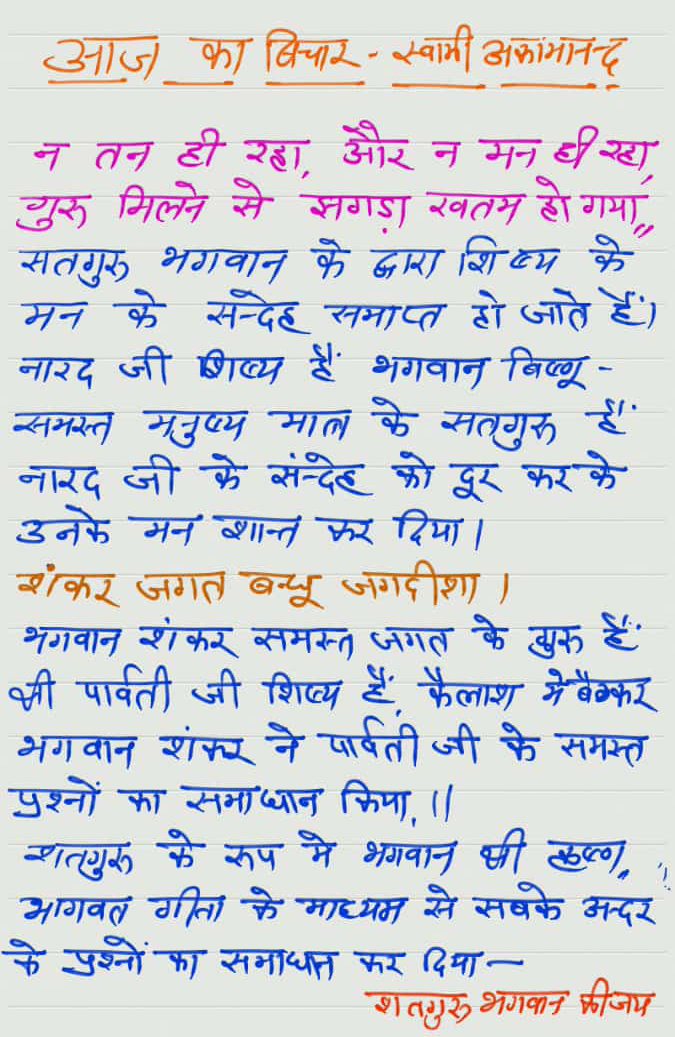 आज का विचार - स्वामी अकामानन्द
न तन ही रहा, और न मन ही रहा,
गुरु मिलने से झगड़ा खतम हो गया,,
सतगुरु भगवान के द्वारा शिष्य के
मन के सन्देह समाप्त हो जाते हैं।
नारद जी शिष्य हैं भगवान विष्णू -
समस्त मनुष्य मात्र के सतगुरु हैं
नारद जी के संन्देह को दूर कर के
उनके मन शान्त कर दिया।
शंकर जगत बन्धू जगदीशा।
भगवान शंकर समस्त जगत के गुरु हैं
श्री पार्वती जी शिष्य हैं, कैलाश में बैठकर
भगवान शंकर ने पार्वती जी के समस्त
प्रश्नों का समाधान किया,।।
शतगुरु के रूप मे भगवान श्री कृष्ण,,
भागवत गीता के माध्यम से सबके अन्दर
के प्रश्नों का समाधान कर दिया —
शतगुरु भगवान की जय